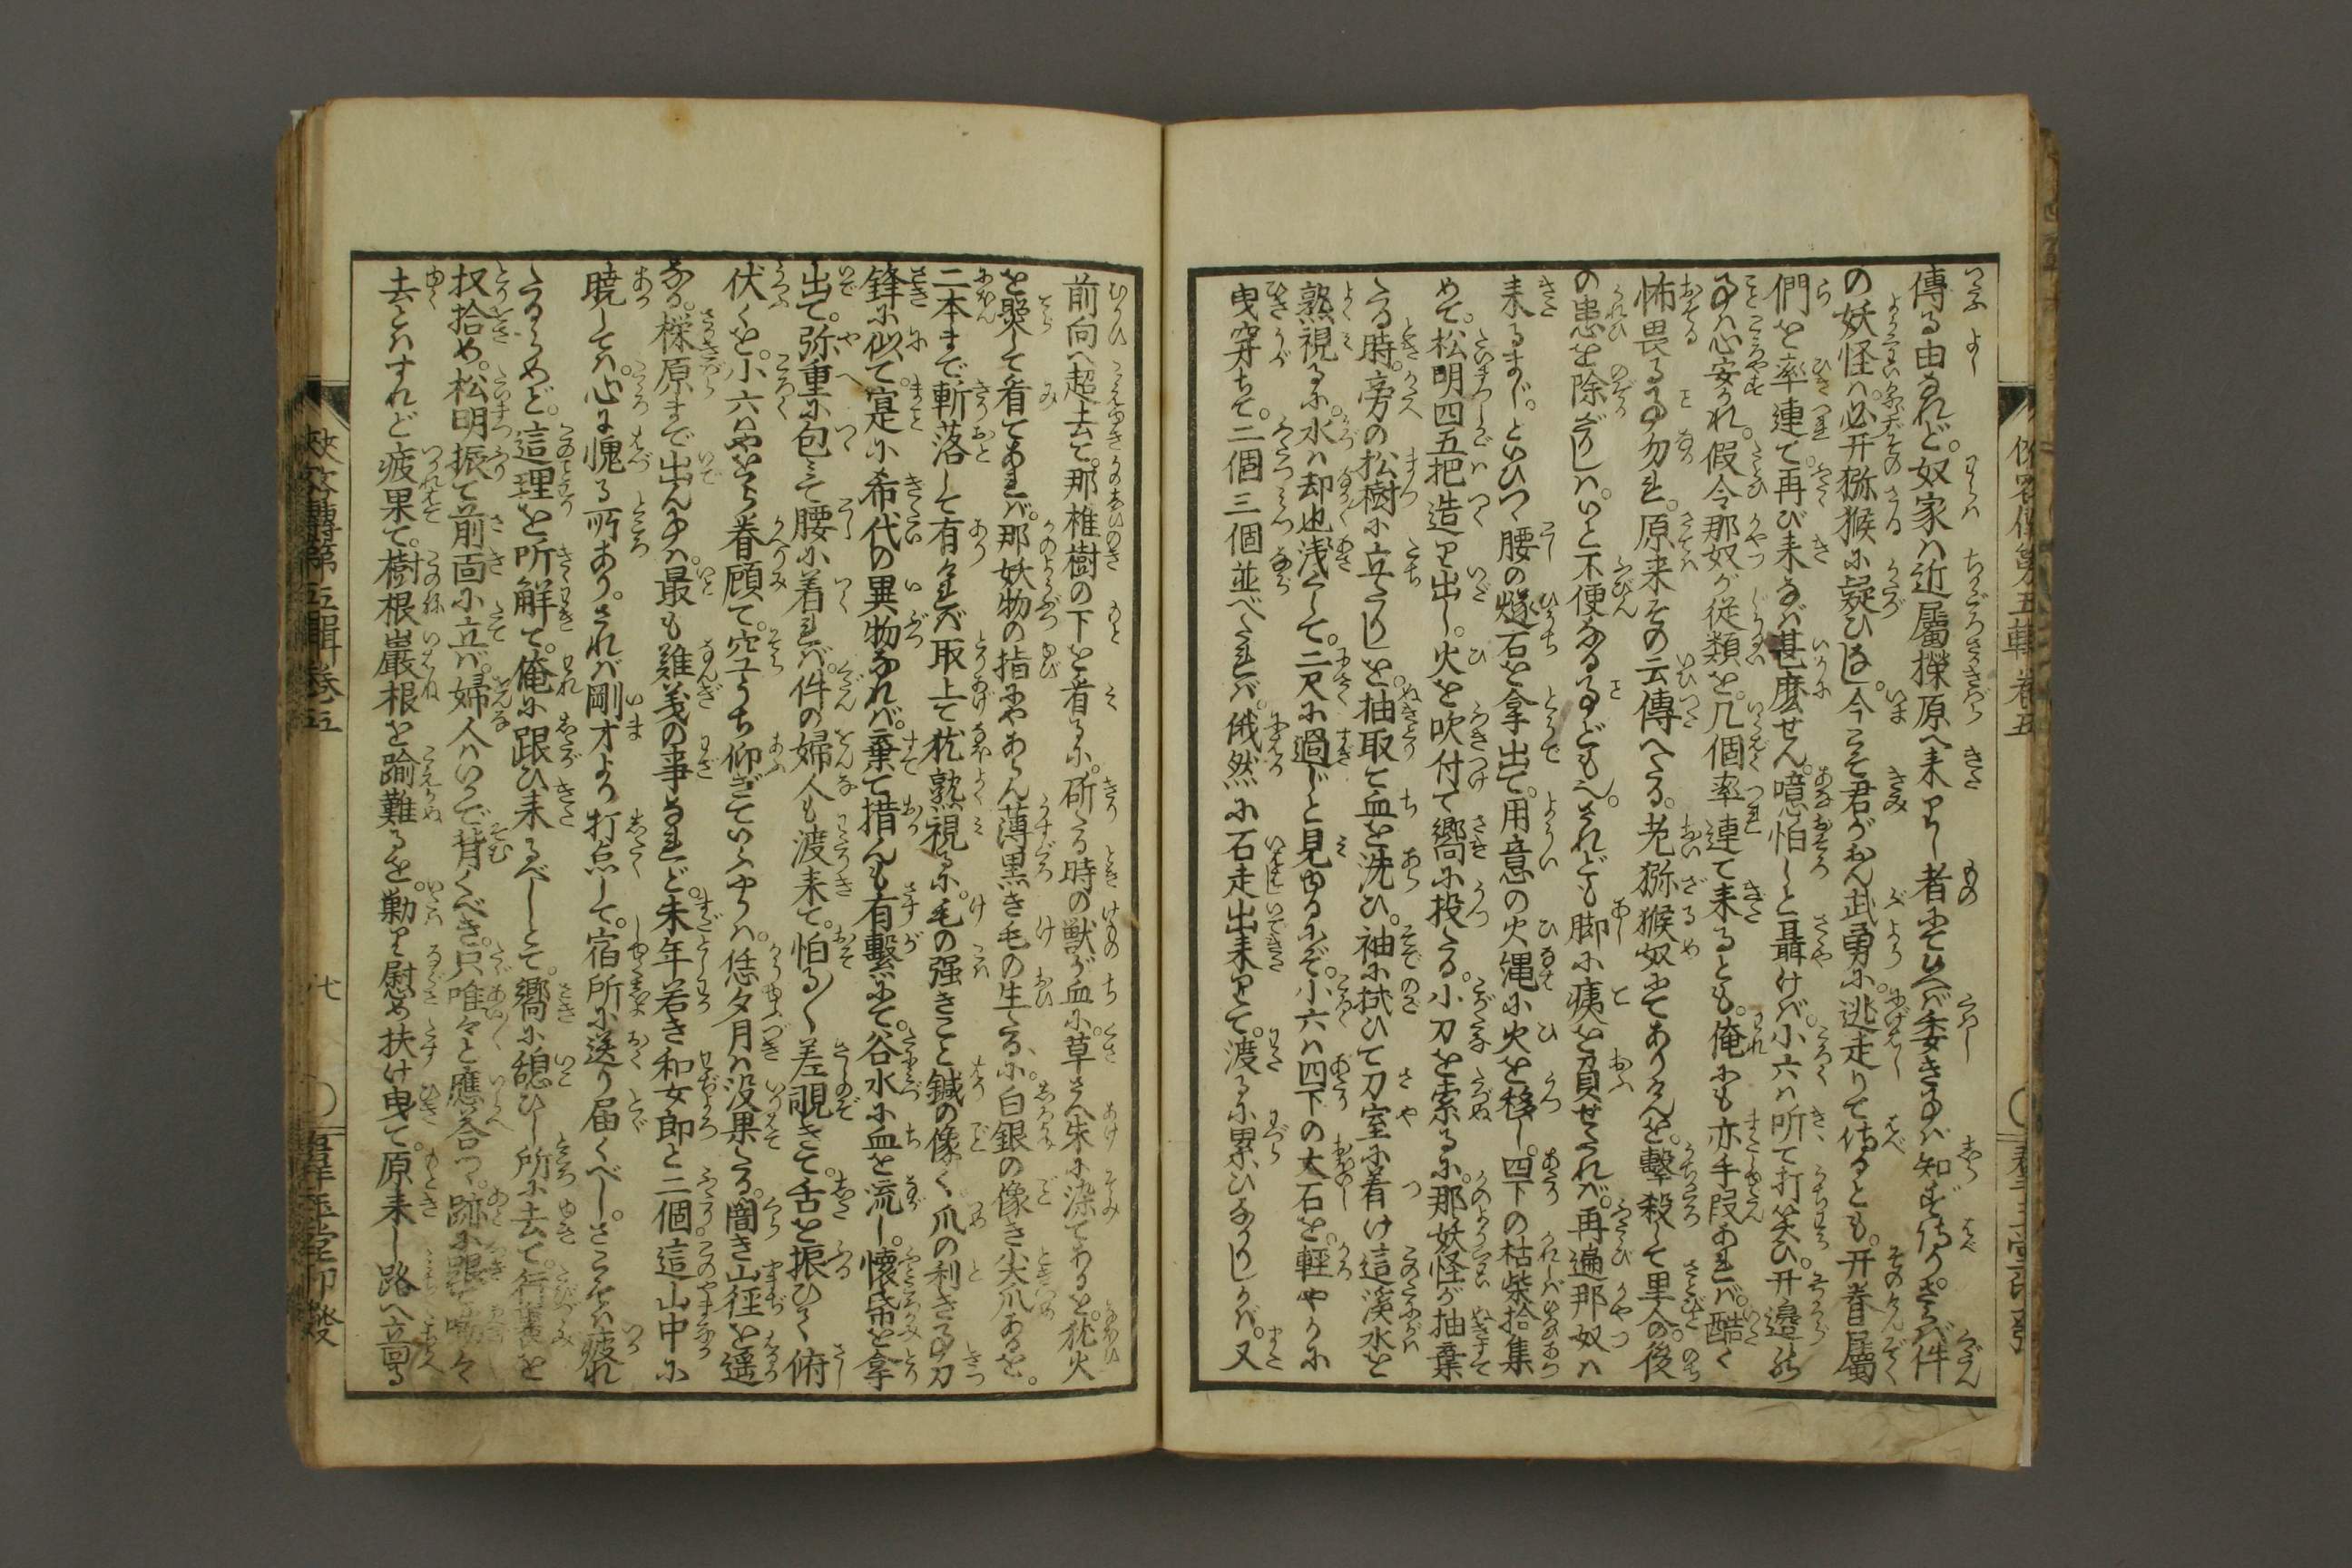 傳る由なれど。奴家は近屬櫟原へ來りし者にて侍れば委き事は知ず侍り。さらば件
の妖怪は。必开獼猴に疑ひなし。今こそ君がおん武勇に。逃走りて侍るとも。开眷屬
們を率連て。再び来なば甚麽せん。噫怕しと聶けば。小六は听て打笑ひ。开邊の
事は心安かれ。假令那奴が従類を。几個率連て来るとも。俺にも亦手段あれば。酷く
怖畏るゝ事勿れ。原来その云傳へたる。老獼猴奴にてありけんを。擊殺して里人の後
の患を除ざりしは。いと不便なる事ども也。されども脚に痍を負せたれば。再遍那奴は
来るまじ。といひつゝ腰の燧石を拿出て。用意の火縄に火を移し。四下の枯柴拾集
めて。松明四五把造り出し。火を吹付て嚮に投たる。小刀を索るに。那妖怪が抽棄
たる時。旁の松樹に立たりしを。抽取て血を洗ひ。袖に拭ひて刀室に着け這溪水を
熟視るに。水は却也浅くして。二尺に過じと見ゆるにぞ。小六は四下の大石を。輕やかに
曳穿ちて。二個三個並べたれば。俄然に石走出来りて。渡るに累ひなかりしかば。又
前向へ超去て。那椎樹の下を看るに。斫たる時の獣が血に。草さへ朱に染てあるを。松火
を照して看てあれば。那妖物の指にやあらん薄黒き毛の生たるに。白銀の像き尖爪あるを。
二本まで斬落して有ければ取上て猶熟視るに。毛の强きこと鍼の像く爪の利き事刀
鋒に似て。寔に希代の異物なれば。棄て措んも有繫にて。谷水に血を流し。懐帋を拿
出て。弥重に包みて腰に着れば。件の婦人も渡来て。怕る〳〵差覗きて。舌を振ひて俯
伏くを。小六はやをら眷顧て。空うち仰ぎていふやう。恁夕月は没果たる。闇き山径を遥
なる。櫟原まで出んには。最も難義の事なれど。未年若き和女郎と二個。這山中に
暁しては。心に愧る所あり。されば剛才より打点して。宿所に送り届くべし。さこそは疲れ
たるらめど。這理を所解て。俺に跟ひ来るべしとて。嚮に憩ひし所に去て。行裹を
扠拾め。松明振て前面に立ば。婦人はいかで背くべき。只唯々と應答つゝ。跡に跟て
去とはすれど疲果て。樹根巖根を踰難るを。勦り慰め扶け曳て。原来し路へ立帰る